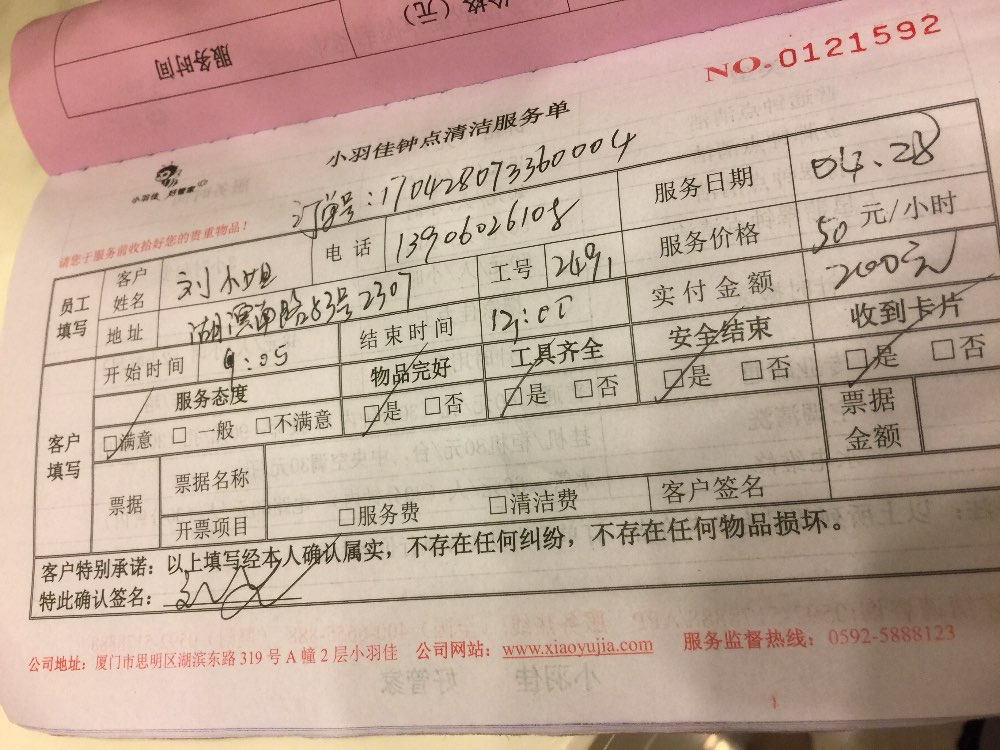 价格（元）
服务时间
NO.0121592
小羽佳钟点清洁服务单
小羽佳 好管家
订单号：170428073360004
请您于服务前收拾好您的贵重物品！
员工填写 客户姓名 刘小姐 电话 13906026108 服务日期 04.28
地址 湖滨南路83号2307 工号 2491 服务价格 50元/小时
开始时间 9:05 结束时间 12:00 实付金额 200元
客户填写 服务态度 物品完好 工具齐全 安全结束 收到卡片
□满意 □一般 □不满意 □是 □否 □是 □否 □是 □否 □是 □否
票据 票据名称 票据金额
开票项目 □服务费 □清洁费 客户签名
客户特别承诺：以上填写经本人确认属实，不存在任何纠纷，不存在任何物品损坏。
特此确认签名：
公司地址：厦门市思明区湖滨东路 319 号 A 幢 2 层小羽佳 公司网站：www.xiaoyujia.com 服务监督热线：0592-5888123